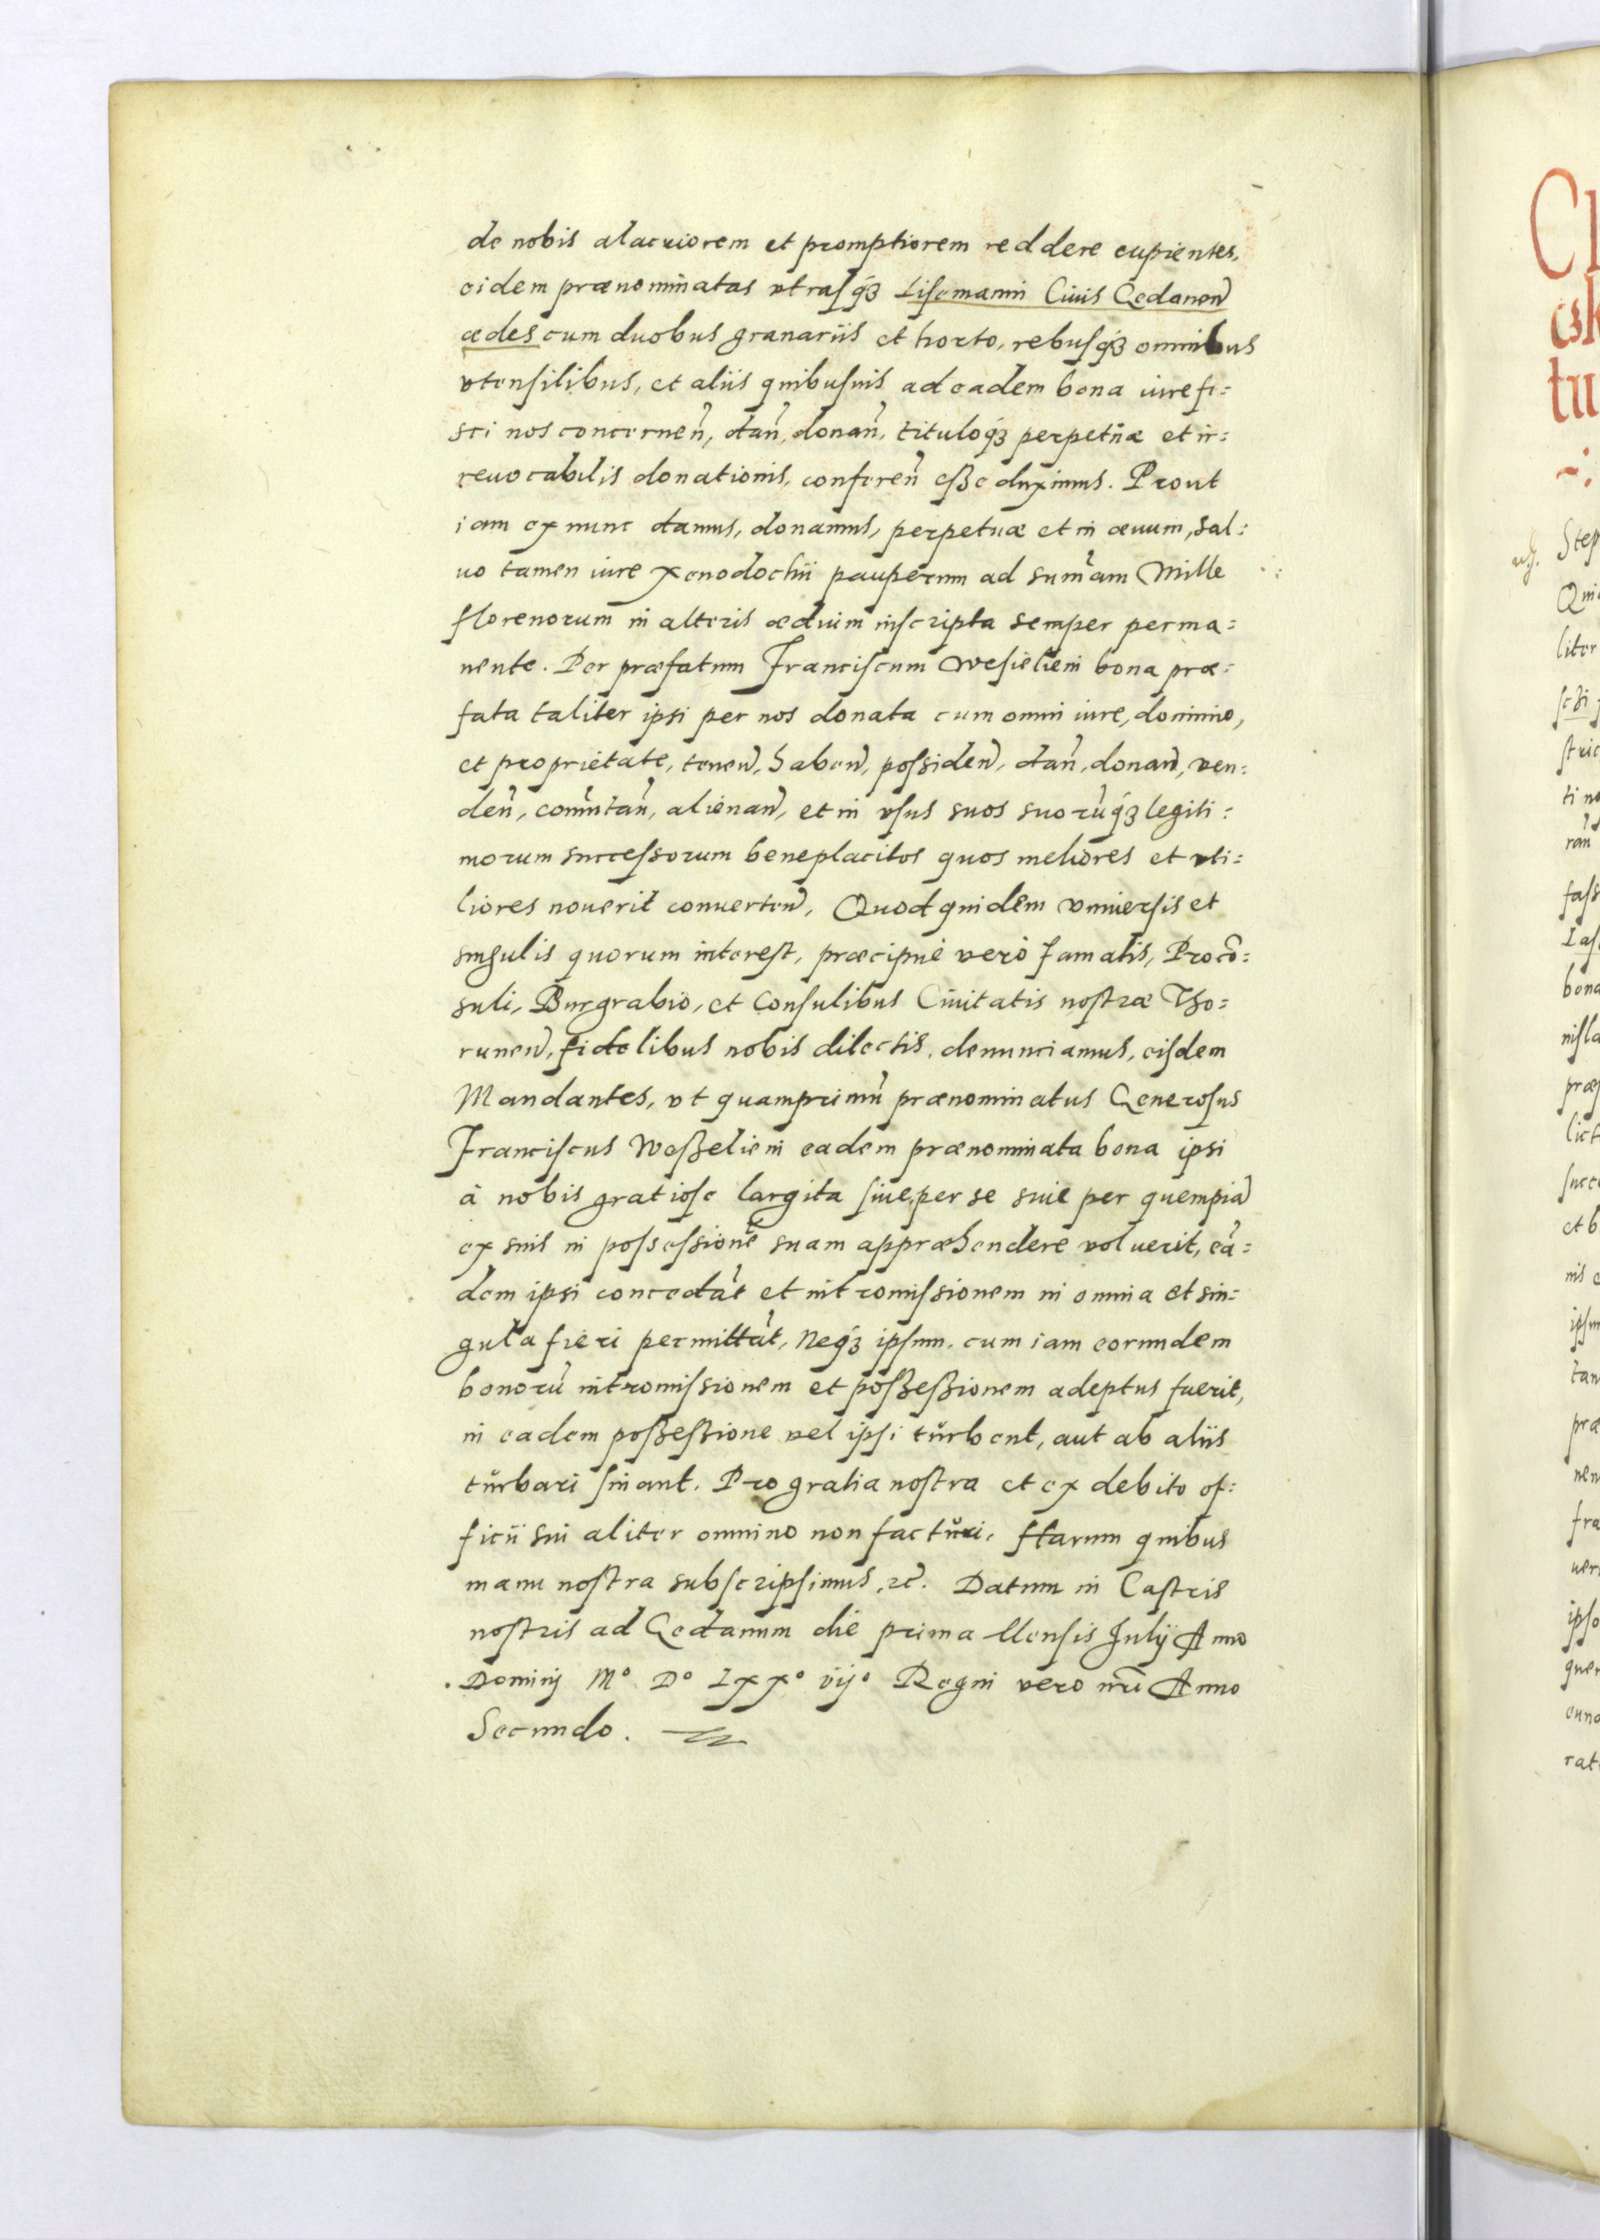 de nobis alacriorem et promptiorem reddere cupientes,
eidem prænominatas vtrasq́ꝫ Lisemanni Ciuis Gedanen̄
ædes cum duobus granariis et horto, rebusq́ꝫ omnibus
vtensilibus, et aliis quibusuis ad eadem bona iure fi=
sci nos concernen̄, dan̄, donan̄, tituloq́ꝫ perpetuæ et ir=
reuocabilis donationis, conferen̄ eſße duximus. Prout
iam ex nunc damus, donamus, perpetuæ et in æuum, sal=
uo tamen iure xenodochii pauperum ad sum̄am Mille
florenorum in alteris ædium inscripta semper perma=
nente. Per præfatum Franciscum Wesieliem bona præ=
fata taliter ipsi per nos donata cum omni iure, dominio,
et proprietate, tenen̄, haben̄, possiden̄, dan̄, donan̄, ven=
den̄, com̄utan̄, alienan̄, et in vsus suos suorū́q́ꝫ legiti=
morum successorum beneplacitos quos meliores et vti=
liores nouerit conuerten̄, Quod quidem vniuersis et
singulis quorum interest, præcipuè verò famatis, Procō=
suli, Burgrabio, et Consulibus Ciuitatis nostræ Tho=
runen̄, fidelibus nobis dilectis, denunciamus, eisdem
Mandantes, vt quamprimū prænominatus Generosus
Franciscus Weßeliem eadem prænominata bona ipsi
à nobis gratiose largita siue, per se siue per quempiā
ex suis in possessionē suam appræhendere voluerit, eā=
dem ipsi concedāt et intromissionem in omnia et sin=
gula fieri permittāt, Neq́ꝫ ipsum, cum iam eorundem
bonorū intromissionem et poßeßionem adeptus fuerit,
in eadem poßeßione vel ipsi tŭrbent, aut ab aliis
tŭrbari sinant. Pro gratia nostra et ex debito of=
ficii sui aliter omnino non factŭri. Harum quibus
manu nostra subscripsimus, ꝛc̄. Datum in Castris
nostris ad Gedanum die prima Mensis Julij Anno
Dominj Mº Dº Lxxº vijº Regni vero nr̄i Anno
Secundo.